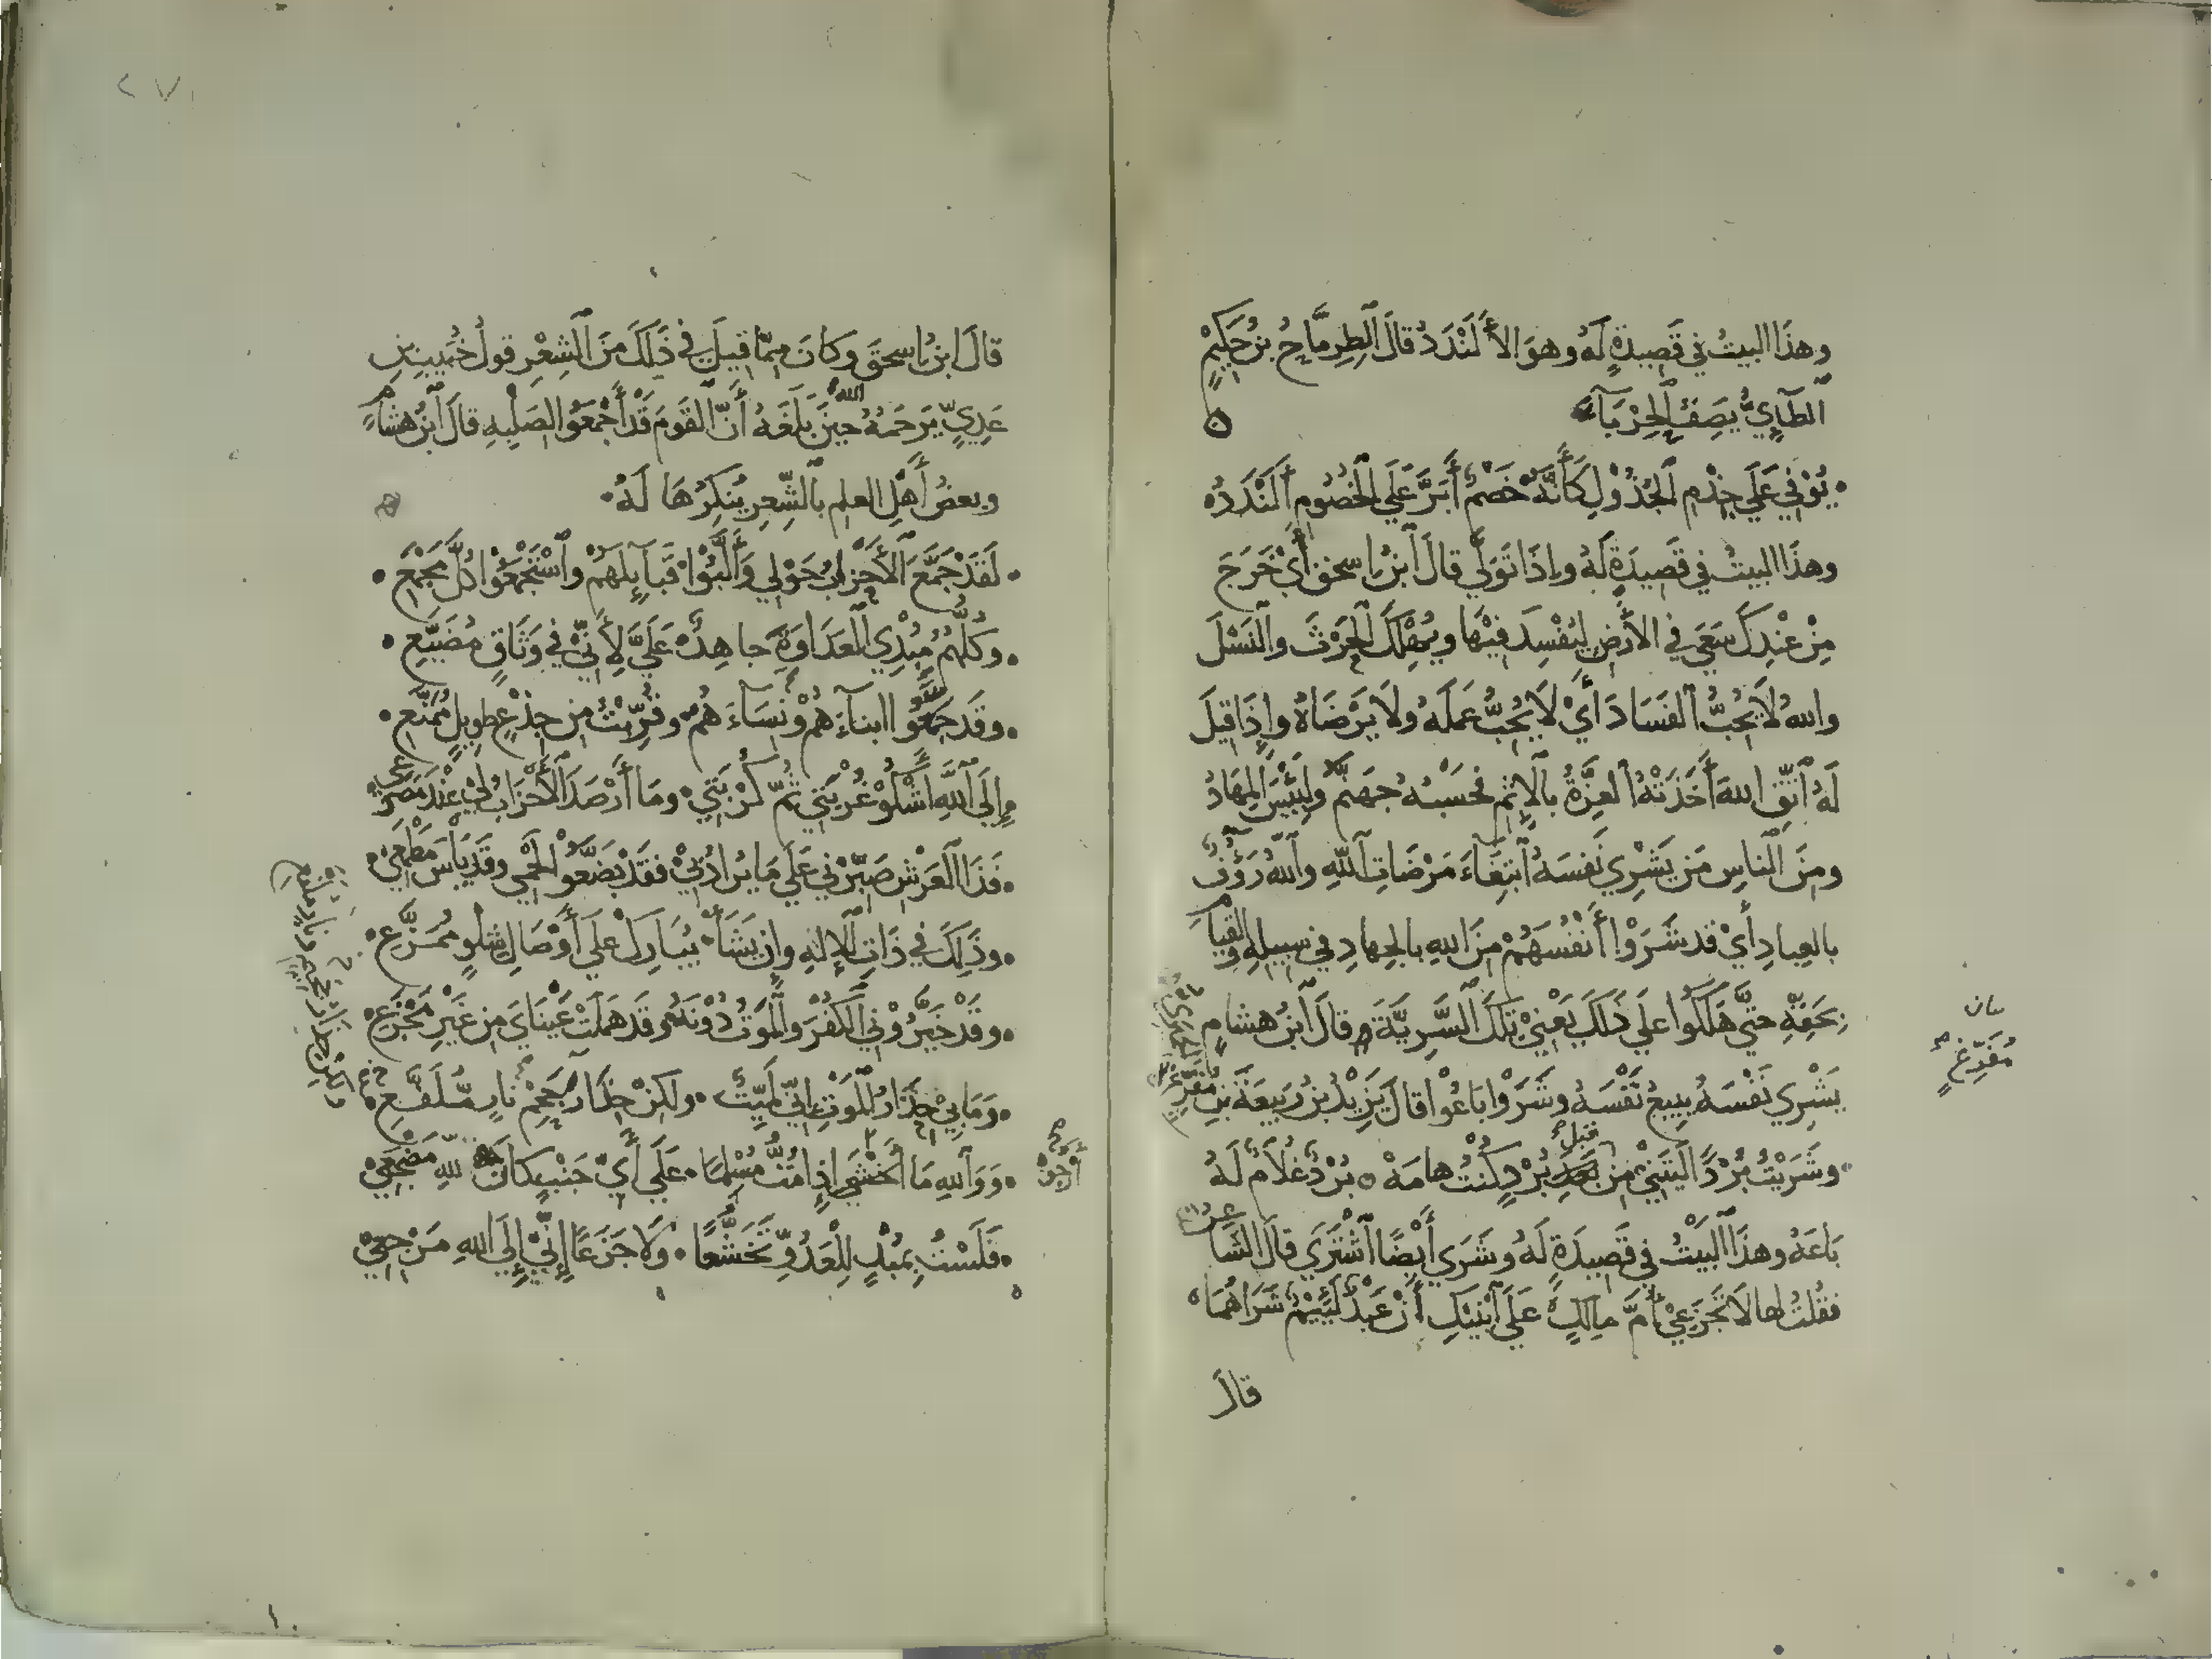 وهذا البيت في قصيدة له وهو الألندد قال الطرماح بن حكيم
الطآئي يصف الحربآء
يُوفي على جذم الجذول كأنه خصم أبر على الخصوم ألندد
وهذا البيت في قصيدة له وإذا تولى قال ابن إسحق أي خرج
من عندك سعى في الأرض ليفسد فيها ويهلك الحرث والنسل
والله لا يحب الفساد أي لا يحب عمله ولا يرضاه وإذا قيل
له اتق الله أخذته العزة بالإثم فحسبه جهنم ولبئس المهاد
ومن الناس من يشري نفسه ابتغاء مرضات الله والله رؤف
بالعباد أي قد شروا أنفسهم من الله بالجهاد في سبيله والقيام
بحقه حتى هلكوا على ذلك يعني تلك السرية قال ابن هشام
يشري نفسه يبيع نفسه وشروا باعوا قال يزيد بن ربيعة بن مفرغ
وشريت بردا ليتني من بعد برد كنت هامه برد غلام له
قبل
باعه وهذا البيت في قصيدة له وشرى أيضا اشترى قال الشاعر
فقلت لها لا تجزعي أم مالك على ابنيك أن عبد لئيم شراهما
قال
بيان
مفرغ
٢٧١
قال ابن إسحق وكان مما قيل في ذلك من الشعر قول خبيب بن
عدي يرحمه الله حين بلغه أن القوم قد أجمعوا لصلبه قال ابن هشام
وبعض أهل العلم بالشعر ينكرها له
لقد جمع الأحزاب حولي وألبوا قبآئلهم واستجمعوا كل مجمع
وكلهم مبدي العداوة جاهد علي لأني في وثاق مضيع
وقد جمعوا ابناءهم ونساءهم وقربت من جذع طويل ممنع
إلى الله أشكو غربتي ثم كربتي وما أرصد الأحزاب لي عند مصرعي
فذا العرش صبرني على ما يراد بي فقد بضعوا لحمي وقد ياس مطمعي
وذلك في ذات الإله وإن يشأ يبارك على أوصال شلو ممزع
وقد خيروني الكفر والموت دونه وقد هملت عيناي من غير مجزع
وما بي حذار الموت إني لميت ولكن حذاري جحم نار ملفع
ووالله ما أخشى إذا مت مسلما على أي جنب كان لله مضجعي
أرجو
فلست بمبد للعدو تخشعا ولا جزعا إني إلى الله مرجعي